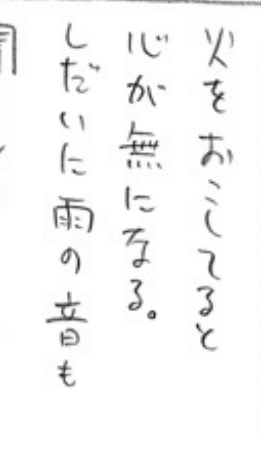 火をおこしてると
心が無になる。
しだいに雨の音も